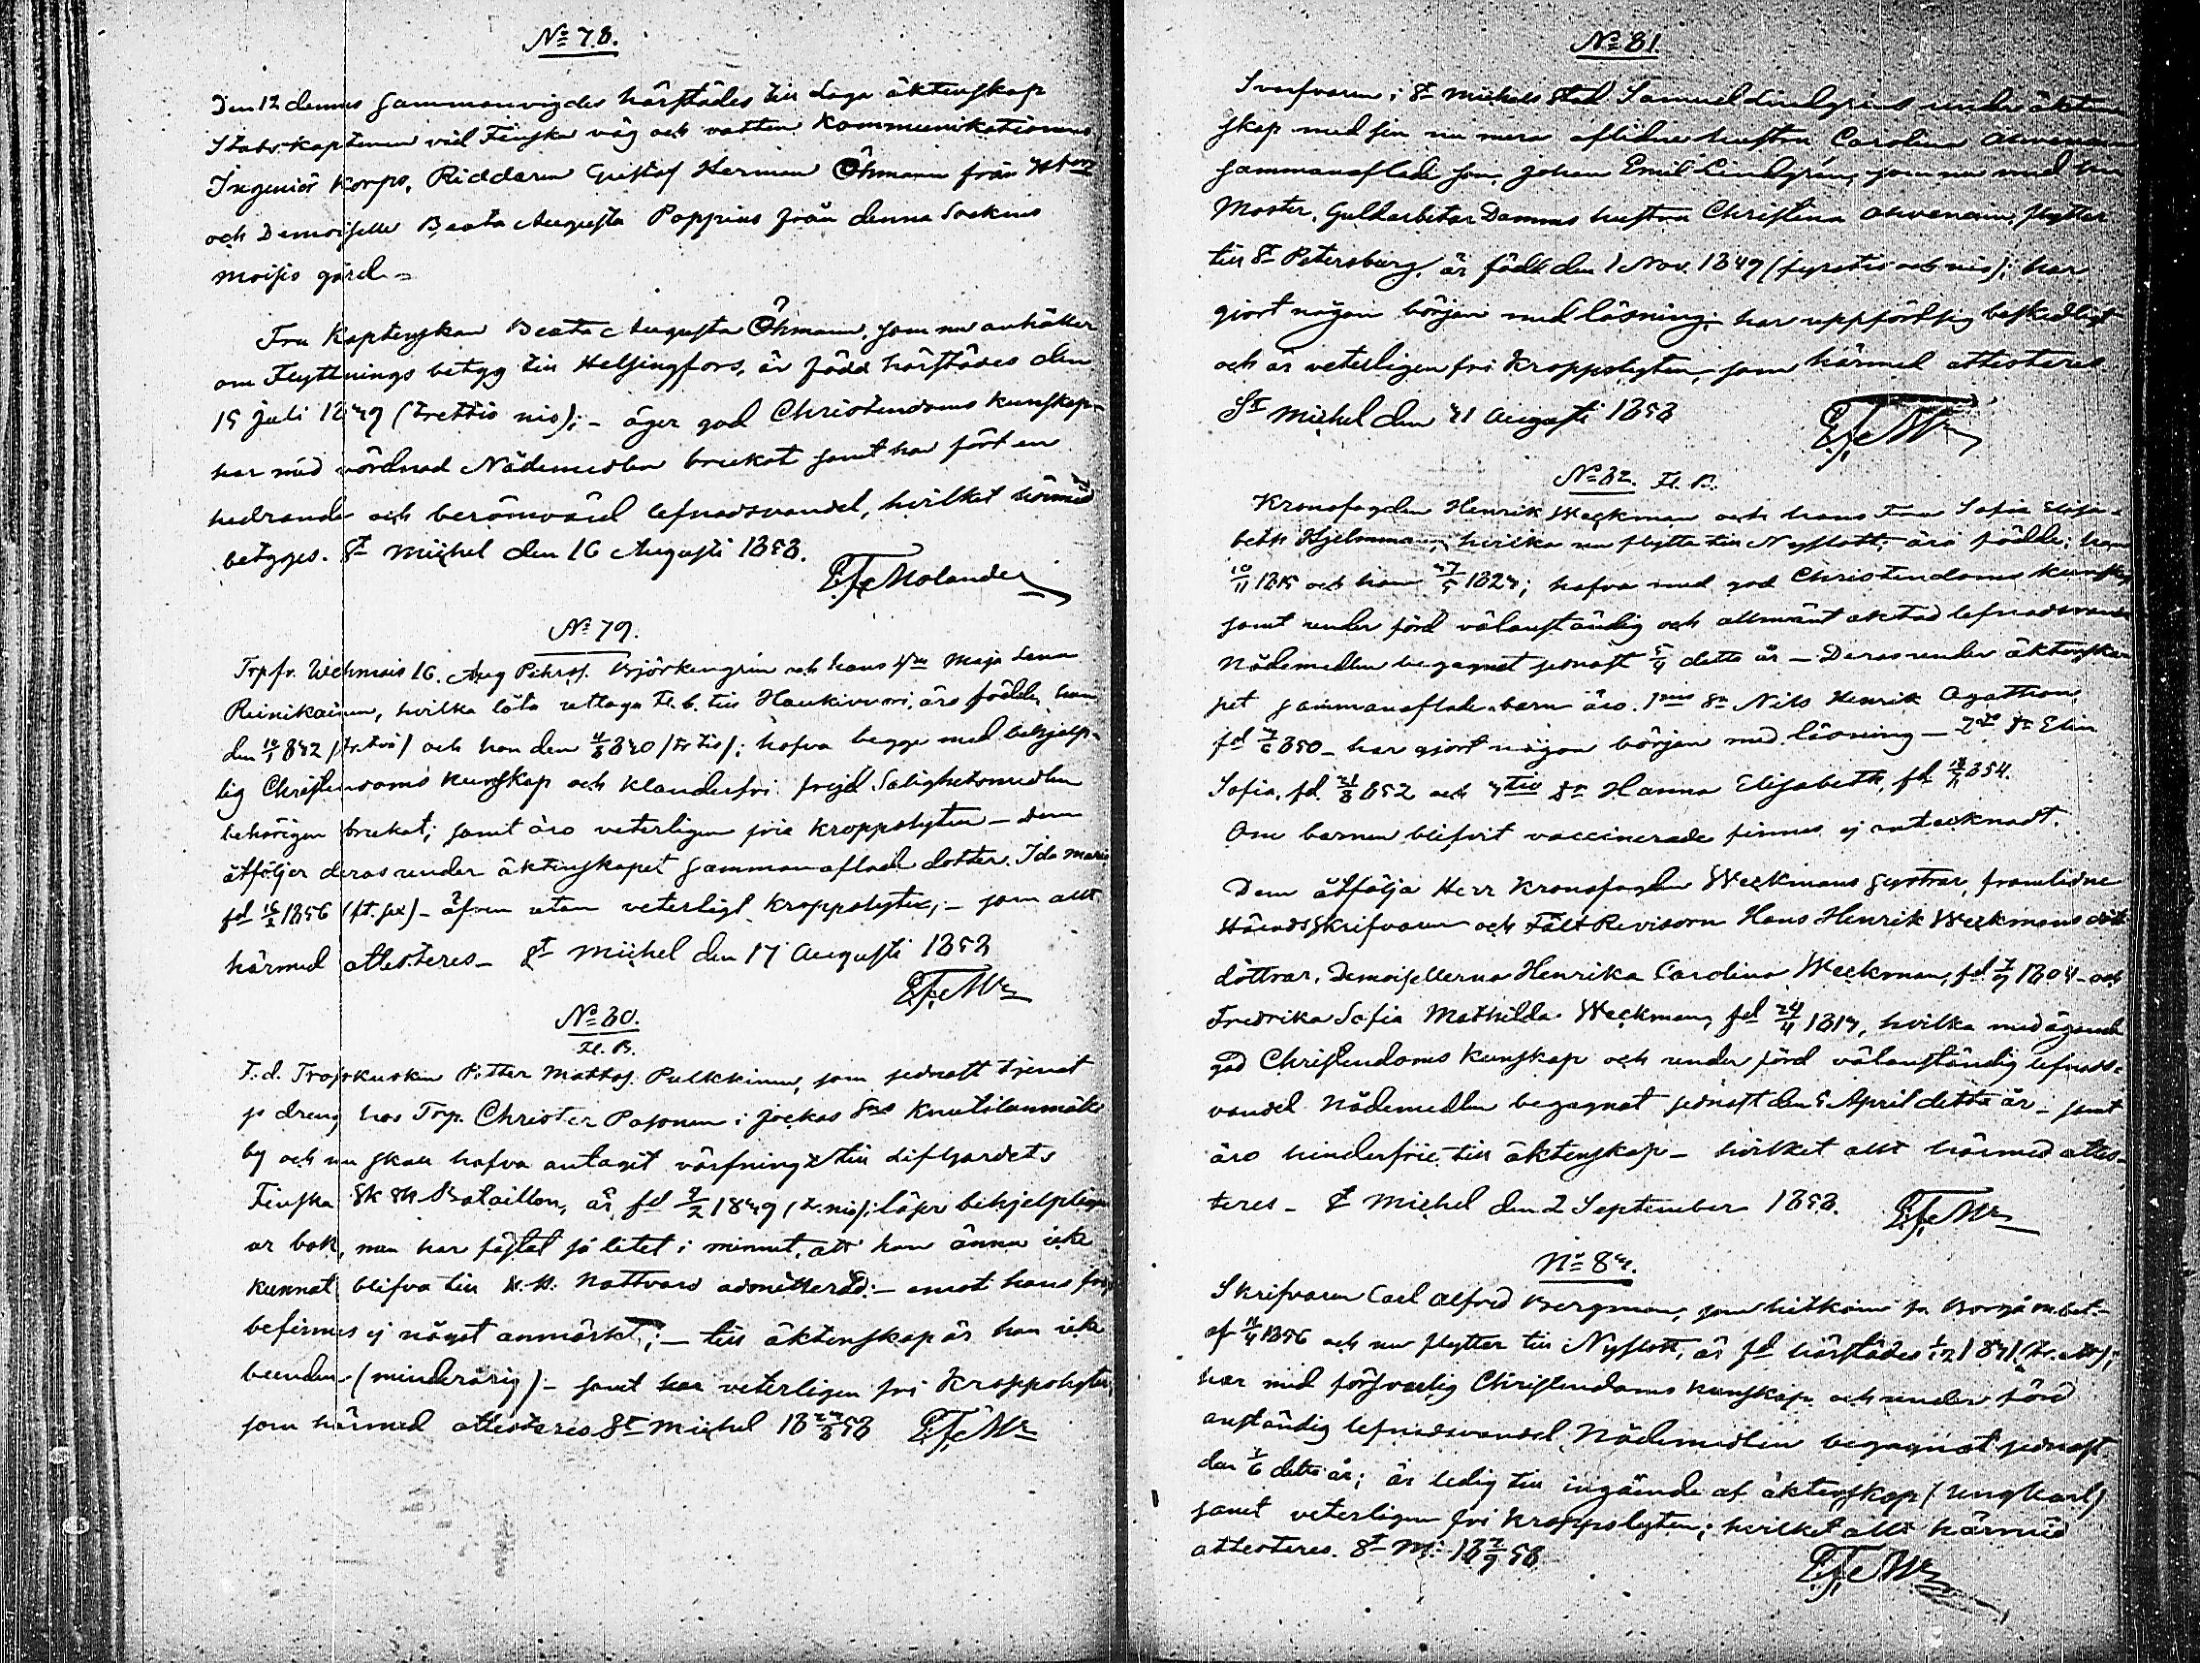 No 78.
Den 12 dennes sammanvigdes härstädes till laga äktenskap
Stabs-kaptenen vid Finska väg och vatten Kommunikationens
Ingeniör Korps, Riddaren Gustaf Herman Öhmann från
och Demoiselle Beata Augusta Poppius från denna Sockens
Moisio gård –
Fru Kaptenskan Beata Augusta Öhmann, som nu anhåller
om Flyttnings betyg till Helsingfors, är född härstädes den
15 Juli 1839 (trettio nio); – äger god Christendoms kunskap –
har med vördnad Nådemedlen brukat samt har fört en
hedrande och berömvärd lefnadsvandel, hvilket härmed
betygges. St Michel den 16 Augusti 1858.
Molander
No 79.
Torpfr. Wehmais 16. Aug Pehrss. Björkengrén och hans Maja Lena
Reinikainen, hvilka låta uttaga Fl. b. till Haukivuori, äro födde, han
den 832 (tr. två) och hon den 830 (tr tio); hafva begge med behjelp-
lig Christendoms kunskap och klanderfri frejd Salighetsmedlen
behörigen brukat; samt äro veterligen fria kroppslyten – Dem
åtföljer deras under äktenskapet sammanaflade dotter Ida Maria
fd 16/2 1856 (ft. sex) – äfven utan veterligt kroppslyte; – som allt
härmed attesteres – St Michel den 17 Augusti 1858
No 80.
Fl. B.
F. d. Trosskusken Petter Mattss. Pulkkinen, som sednast tjenat
ss dreng hos Torp. Christer Pasonen i Jockas Sns Knutilanmäki
by och nu skall hafva antagit värfning till Lifgardets
Finska Sk Sk Bataillon, är fd 9/2 1839 (tr. nio); läser behjelpligen
ur bok, men har fästat så litet i minnet, att han ännu icke
kunnat blifva till H. H. Nattvard admitterad: – emot hans frejd
befinnes ej något anmärkt; – till äktenskap är han icke
bunden (minderårig) – samt har veterligen fri Kroppslyten,
som härmed attesteres St Michel 18 23/8 58
No 81
Svarfvaren i St Michels stad Samuel Lindgréns under äkten-
skap med sin nu mera aflidne hustru Carolina Ahvenainen
sammanaflade son, Johan Emil Lindgrén, som nu med sin
Moster, Guldarbetar Damms hustru Christina Ahvenainen, flyttar
till St Petersburg, är född den 1 Nov. 1849 (fyratio och nio); har
gjort någon början med läsning; har uppfört sig beskedligt
och är veterligen fri Kroppslyten, som härmed attesteres
St Michel den 31 Augusti 1858
No 82. Fl. B.
Kronofogden Henrik Weckman och hans Fru Sofia Elisa-
beth Hjelmman, hvilka nu flytta till Nyslott, äro födde; han
10/11 1815 och hon 27/5 1823; hafva med god Christendoms kunskap
samt under förd välanständig och allmänt aktad lefnadsvandel
Nådemedlen begagnat sednast 5/4 detta år – Deras under äktenska-
pet sammanaflade barn äro. 1mo Sn Nils Henrik Agathon
fd 7/6 850 – har gjort någon början med läsning – 2do Dr Elin
Sofia, fd. 21/8 852 och 3tio Dr Hanna Elisabeth, fd 854.
Om barnen blifvit vaccinerade finnes ej antecknadt.
Dem åtfölja Herr Kronofogden Weckmans systrar, framlidne
Häradsskrifvaren och Fält Revisorn Hans Henrik Weckmans
döttrar, Demoisellerna Henrika Carolina Weckman, fd 7/9 1804 – och
Fredrika Sofia Mathilda Weckman, fd 24/4 1813, hvilka med ägande
god Christendoms kunskap och under förd välanständig lefnads-
vandel Nådemedlen begagnat sednast den 5 April detta år – samt
äro hinderfrie till äktenskap – hvilket allt härmed attes-
teres – St Michel den 2 September 1858.
No 83.
Skrifvaren Carl Alfred Bergman, som hitkom fr. Borgå m. bet.
af 1856 och nu flyttar till Nyslott, är fd härstädes 1/12 831;
har med försvarlig Christendoms kunskap och under förd
anständig lefnadsvandel Nådemedlen begagnat sednast
den detta år; är ledig till ingående af äktenskap (ungkarl)
samt veterligen fri kroppslyten; hvilket allt härmed
attesteres. St M: 18 7/9 58